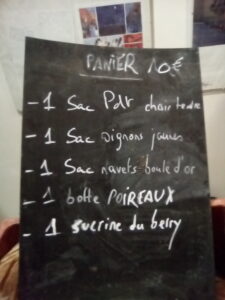 PANIER 10€
- 1 Sac Pdt chair tendre
- 1 Sac oignons jaunes
- 1 Sac navets boule d'or
- 1 botte POIREAUX
- 1 sucrine du berry